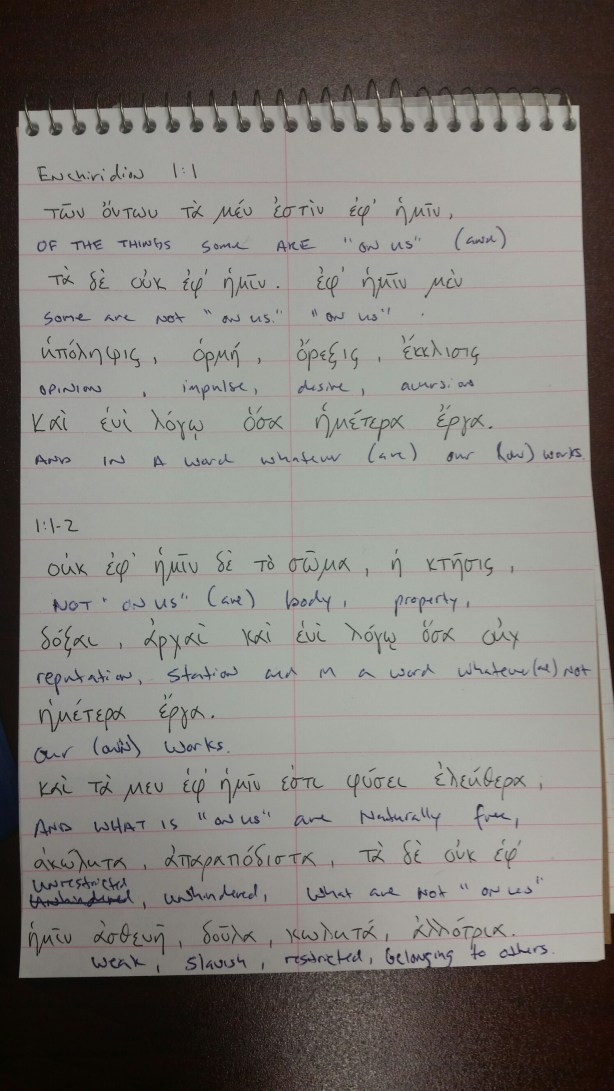 Enchiridion 1:1
τῶν ὄντων τὰ μέν ἐστὶν ἐφ' ἡμῖν,
OF THE THINGS Some ARE "on us" (and)
τὰ δὲ οὐκ ἐφ' ἡμῖν. ἐφ' ἡμῖν μὲν
Some are not "on us." "on us"
ὑπόληψις, ὁρμή, ὄρεξις, ἔκκλισις
OPINION, impulse, desire, aversion
καὶ ἑνὶ λόγῳ ὅσα ἡμέτερα ἔργα.
AND IN A word whatever (are) our (own) works
1:1-2
οὐκ ἐφ' ἡμῖν δὲ τὸ σῶμα, ἡ κτῆσις,
NOT "on us" (are) body, property,
δόξαι, ἀρχαὶ καὶ ἑνὶ λόγῳ ὅσα οὐχ
reputation, station and in a word whatever (are) NOT
ἡμέτερα ἔργα.
our (own) works.
καὶ τὰ μεν ἐφ' ἡμῖν ἐστι φύσει ἐλεύθερα,
AND WHAT IS "on us" are Naturally free,
ἀκώλυτα, ἀπαραπόδιστα, τὰ δὲ οὐκ ἐφ'
unrestricted, unhindered, what are not "on us"
ἡμῖν ἀσθενῆ, δοῦλα, κωλυτά, ἀλλότρια.
weak, slavish, restricted, belonging to others.